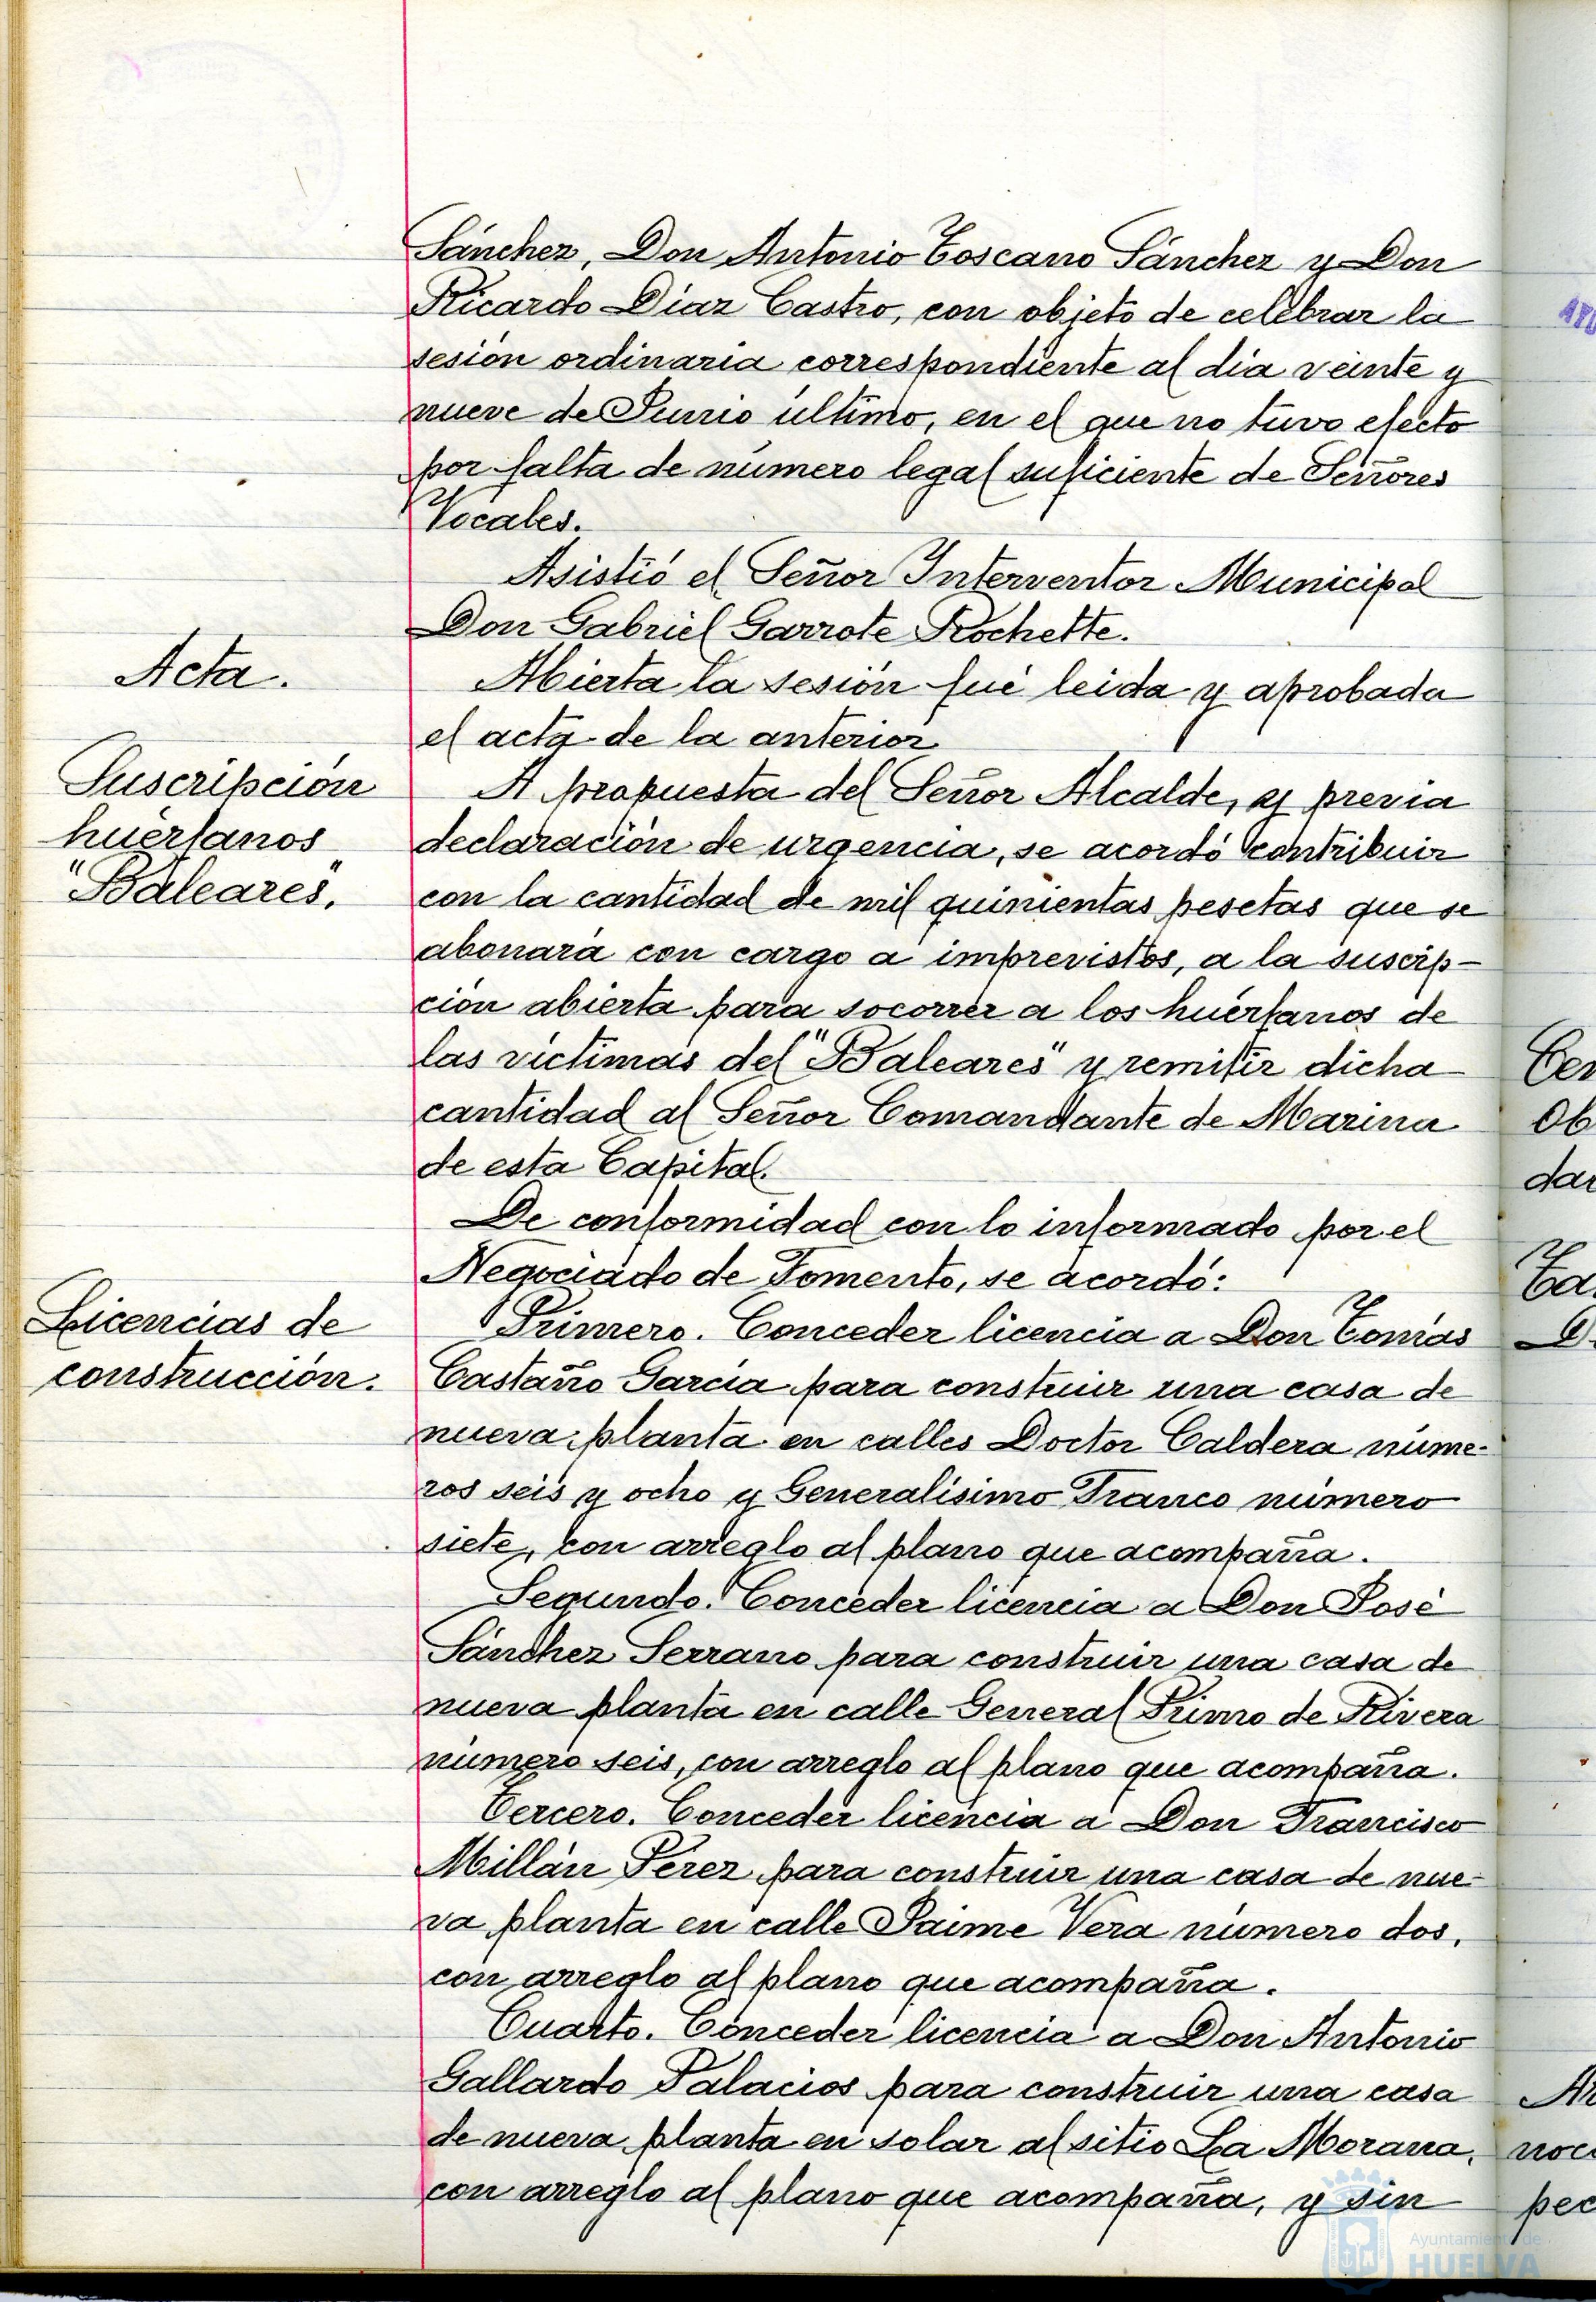 Sánchez, Don Antonio Toscano Sánchez y Don
Ricardo Díaz Castro, con objeto de celebrar la
sesión ordinaria correspondiente al día veinte y
nueve de Junio último, en el que no tuvo efecto
por falta de número legal suficiente de Señores
Vocales.
Asistió el Señor Interventor Municipal
Don Gabriel Garrote Rochette.
Acta.
Abierta la sesión fué leida y aprobada
el acta de la anterior.
Suscripción
huérfanos
"Baleares".
A propuesta del Señor Alcalde, y previa
declaración de urgencia, se acordó contribuir
con la cantidad de mil quinientas pesetas que se
abonará con cargo a imprevistos, a la suscrip-
ción abierta para socorrer a los huérfanos de
las víctimas del "Baleares" y remitir dicha
cantidad al Señor Comandante de Marina
de esta Capital.
De conformidad con lo informado por el
Negociado de Fomento, se acordó:
Licencias de
construcción.
Primero. Conceder licencia a Don Tomás
Castaño García para construir una casa de
nueva planta en calles Doctor Caldera núme-
ros seis y ocho y Generalísimo Franco número
siete, con arreglo al plano que acompaña.
Segundo. Conceder licencia a Don José
Sánchez Serrano para construir una casa de
nueva planta en calle General Primo de Rivera
número seis, con arreglo al plano que acompaña.
Tercero. Conceder licencia a Don Francisco
Millán Pérez para construir una casa de nue-
va planta en calle Jaime Vera número dos,
con arreglo al plano que acompaña.
Cuarto. Conceder licencia a Don Antonio
Gallardo Palacios para construir una casa
de nueva planta en solar al sitio La Morana,
con arreglo al plano que acompaña, y sin
Ayuntamiento de
HUELVA